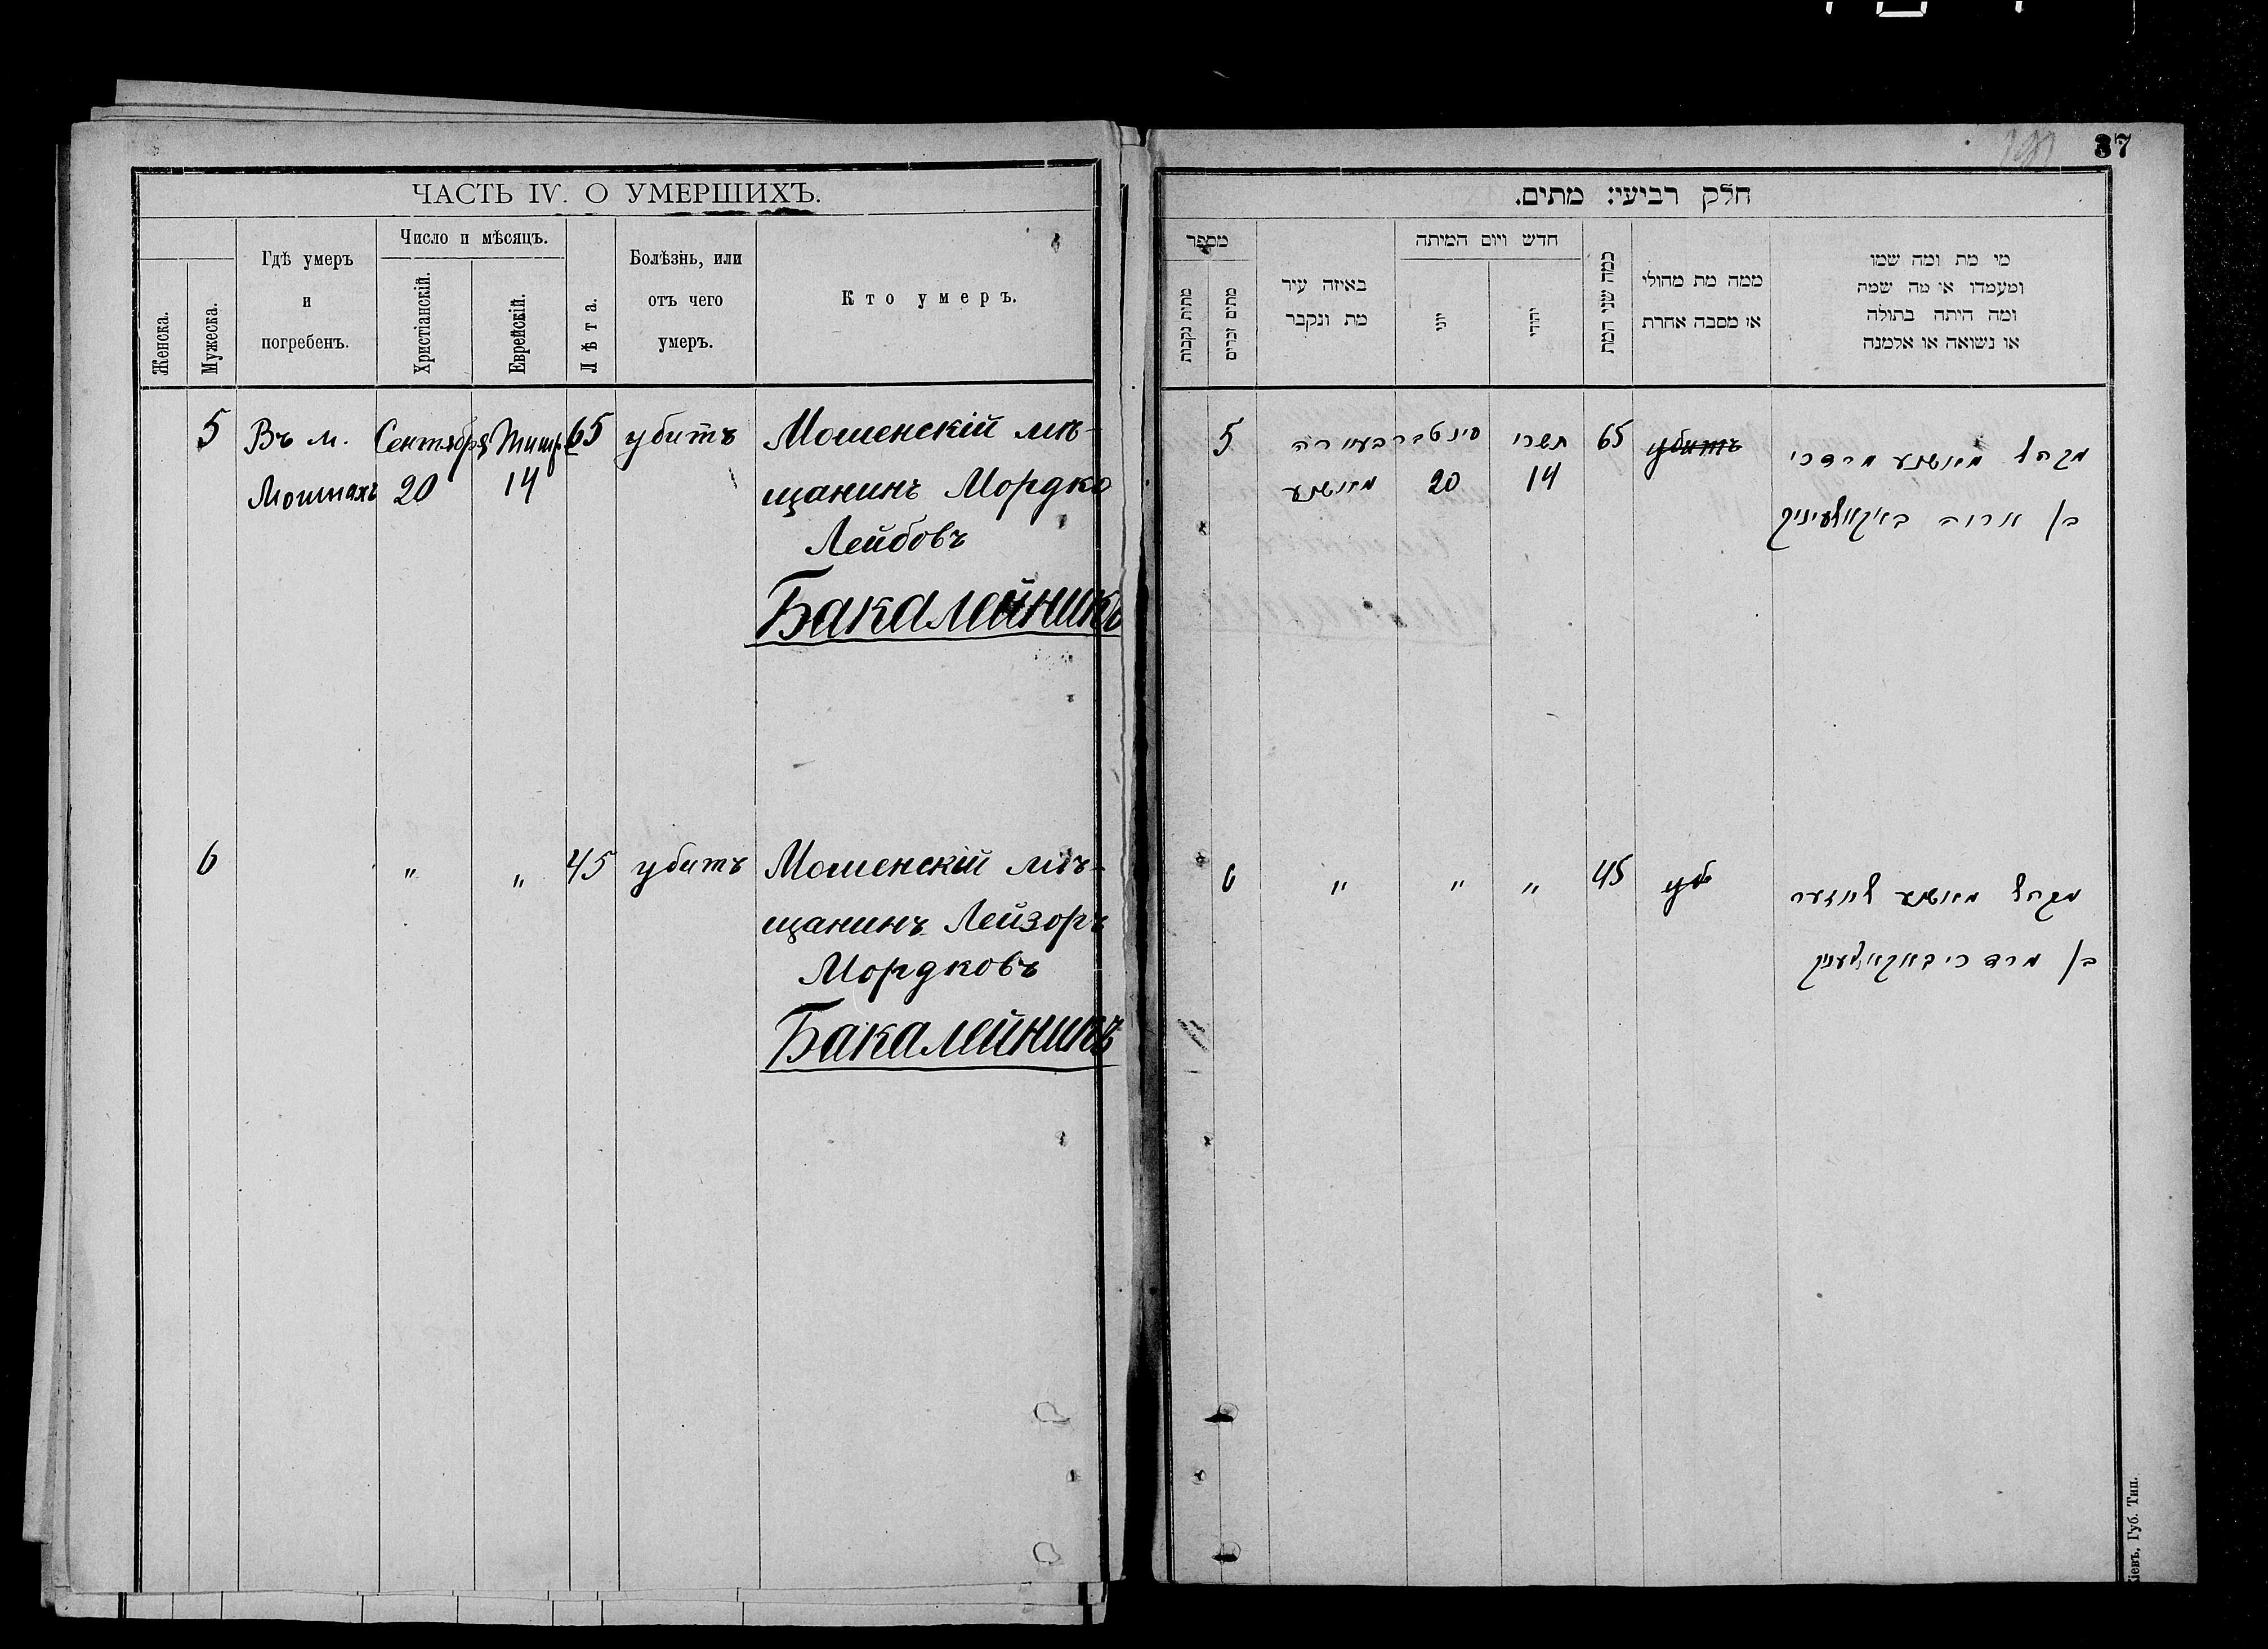 ЧАСТЬ IV. О УМЕРШИХЪ.
Женска.
Мужеска.
Гдѣ умеръ
и
погребенъ.
Число и мѣсяцъ.
Христіанскій.
Еврейскій.
Лѣта.
Болѣзнь, или
отъ чего
умеръ.
Кто умеръ.
5 Въ м. Сентября Тишр. 65 убитъ Мошенскій мѣ-
Мошнахъ 20 14 щанинъ Мордко
Лейбовъ
Бакалейникъ
6 " " 45 убитъ Мошенскій мѣ-
щанинъ Лейзоръ
Мордковъ
Бакалейникъ
37
חלק רביעי: מתים.
מספר
מתות נקבות
מתים זכרים
באיזה עיר
מת ונקבר
חדש ויום המיתה
יוני
יהודי
כמה שני המת
ממה מת מחולי
או מסבה אחרת
מי מת ומה שמו
ומעמדו או מה שמה
ומה היתה בתולה
או נשואה או אלמנה
5 בעיירה סינטבר תשרי 65 убитъ מקהל מאשנע מרדכי
מאשנע 20 14 ב׳׳ אריה באקאלעיניק
6 " " " 45 уб מקהל מאשנע לייזער
מרדכי באקאלעניק
Кіевъ, Губ. Тип.